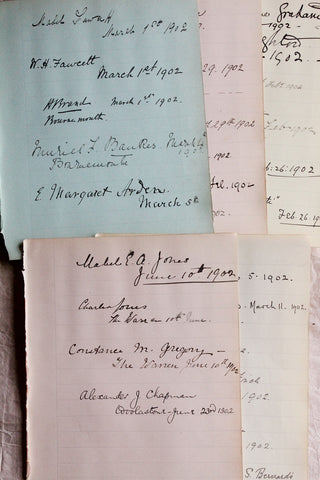 Mabel Fawcett
March 1st 1902
W. H. Fawcett
March 1st 1902
H Brand March 1st 1902.
Bournemouth.
Muriel F. Bankes. March
1902
Bournemouth
E. Margaret Arden.
March 5th
Mabel E. A. Jones
June 10th 1902
Charles Jones
The Warren 10th June.
Constance M. Gregory
The Warren June 10th 1902
Alexander J. Chapman
June 23rd 1902
Graham
1902.
1902.
29. 1902
29th 1902
Feb. 1902
Feb. 26. 1902
Feb. 26. 1902
5. 1902.
March 11. 1902.
1902.
1902.
S. Bernards